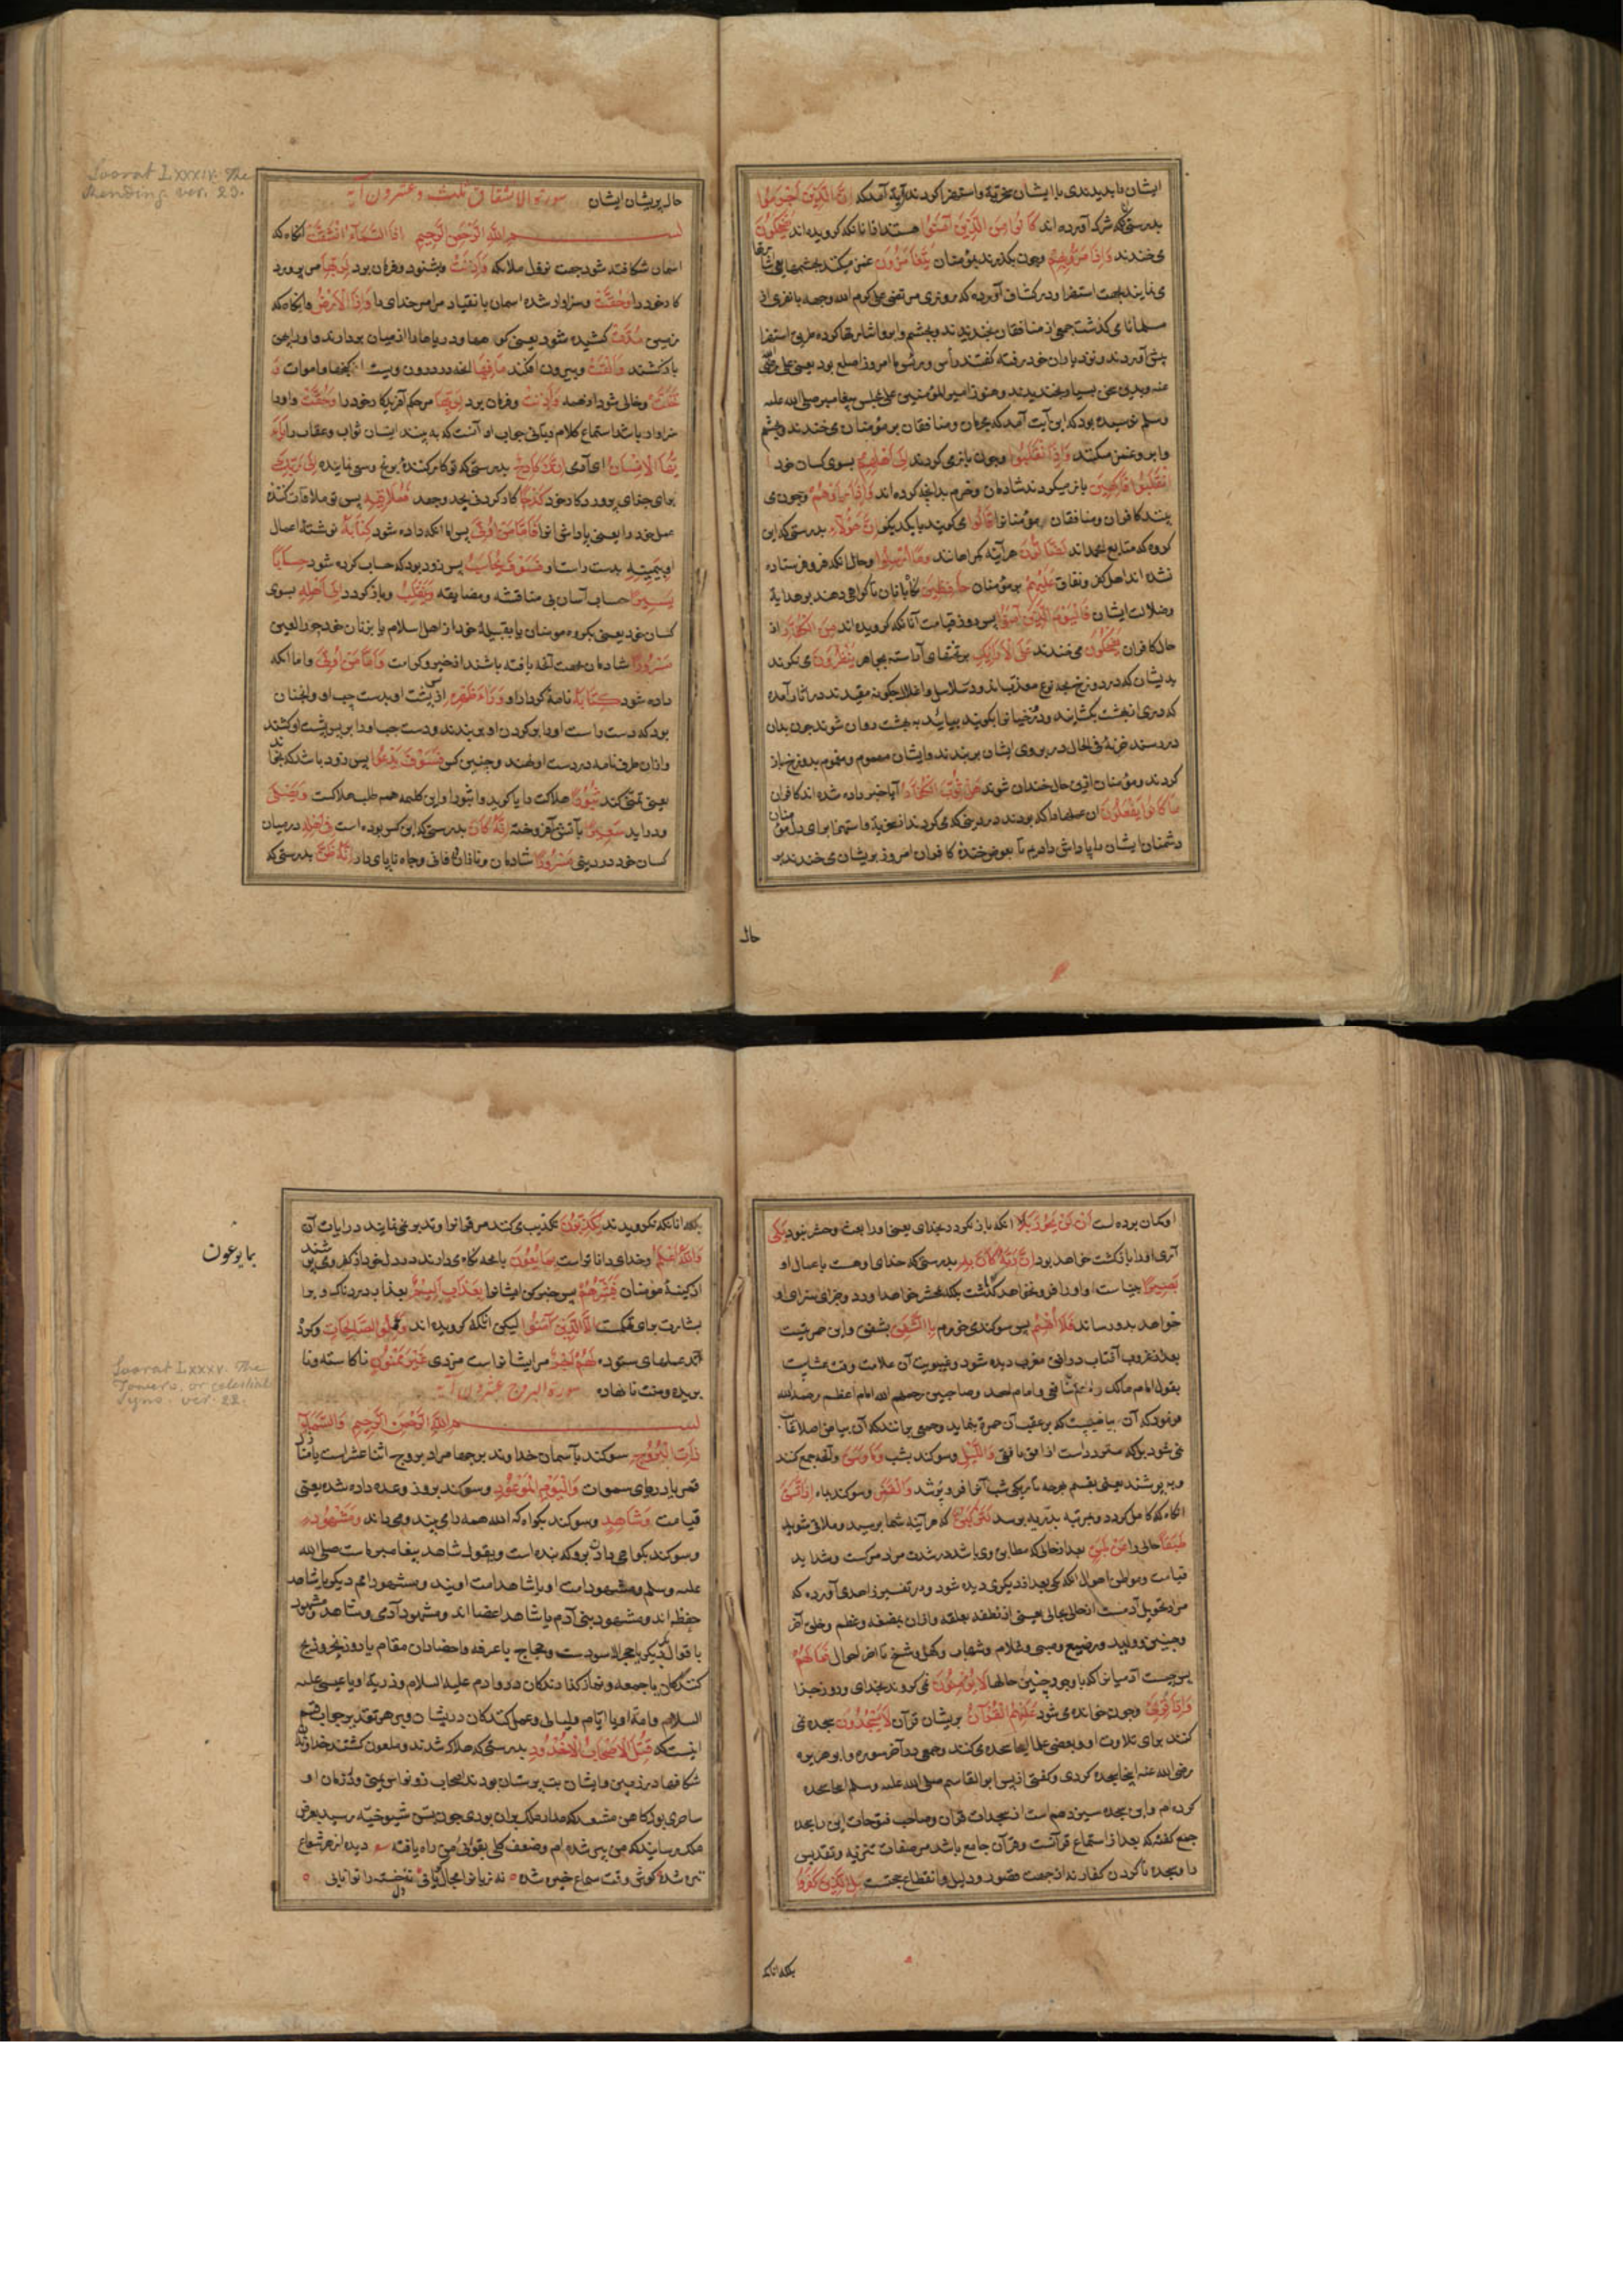 ایشان را بدیدندی با ایشان سخریه و استهزا کردند آیة آمد که إِنَّ الَّذِينَ أَجْرَمُوا
بدرستی که شرک آورده اند كَانُوا مِنَ الَّذِينَ آمَنُوا هستند از آنانکه کرویده اند يَضْحَكُونَ
می خندند وَإِذَا مَرُّوا بِهِمْ وچون بکذرند بمؤمنان يَتَغَامَزُونَ غمز میکنند بچشمها یعنی اشارتها
می نمایند بجهت استهزا و در کشاف آورده که روزی مرتضی علی کرم الله وجهه با نفری از
مسلمانان می کذشت جمعی از منافقان بخندیدند و بچشم و ابرو اشارتها کرده طریق استهزا
پیش آوردند و نزد یاران خود رفته کفتند رأس ورئیس ما امروز اصلع بود یعنی علی رضی
عنه وبدین سخن بسیار بخندیدند وهنوز امیر المؤمنین علی بمجلس پیغامبر صلی الله علیه
وسلم نرسیده بود که این آیت آمد که مجرمان ومنافقان بر مؤمنان می خندند و بچشم
و ابرو غمز میکنند وَإِذَا انْقَلَبُوا وچون باز می کردند إِلَىٰ أَهْلِهِمُ بسوی کسان خود
انْقَلَبُوا فَاكِهِينَ باز میکردند شادمان وخرم بدانچه کرده اند وَإِذَا رَأَوْهُمْ وچون می
بینند کافران ومنافقان مر مؤمنانرا قَالُوا می کویند با یکدیکر إِنَّ هَٰؤُلَاءِ بدرستی که این
کروه که متابع محمداند لَضَالُّونَ هرآینه کمراهانند وَمَا أُرْسِلُوا وحال آنکه فرو فرستاده
نشده اند اهل کفر ونفاق عَلَيْهِمْ بر مؤمنان حَافِظِينَ نکاهبانان تا کواهی دهند بر هدایة
وضلالت ایشان فَالْيَوْمَ الَّذِينَ آمَنُوا پس روز قیامت آنانکه کرویده اند مِنَ الْكُفَّارِ از
حال کافران يَضْحَكُونَ می خندند عَلَى الْأَرَائِكِ بر تختهای آراسته بجواهر يَنْظُرُونَ می نکرند
بدیشان که در دوزخ بچه نوع معذب اند ودر سلاسل واغلال چکونه مقیدند در آثار آمده
که دری از بهشت بکشایند ودوزخیانرا بکویند بیایید به بهشت روان شوند چون بدان
در رسند خزنه فی الحال در بروی ایشان بربندند وایشان مغموم ومهموم بدوزخ باز
کردند ومؤمنان ازین حال خندان شوند هَلْ ثُوِّبَ الْكُفَّارُ آیا خبر داده شده اند کافران
مَا كَانُوا يَفْعَلُونَ آن عملها را که بودند در دنیا که می کردند از سخریه واستهزا برای دل مؤمنان
دشمنان ایشان را پاداش دادیم تا بعوض خنده کافران امروز بریشان می خندند بر
حال
Soorat LXXXIV. The
Rending ver. 23.
حال پریشان ایشان سورة الانشقاق ثلث وعشرون آیة
بسم الله الرحمن الرحیم إِذَا السَّمَاءُ انْشَقَّتْ آنکاه که
اسمان شکافته شود بجهت نزول ملائکه وَأَذِنَتْ وبشنود وفرمان برد لِرَبِّهَا مر پرورد
کار خود را وَحُقَّتْ وسزاوار شده اسمان بانقیاد مر امر خدای را وَإِذَا الْأَرْضُ وآنکاه که
زمین مُدَّتْ کشیده شود یعنی کوهها ودریاها را از میان بردارند واو را چنین
باز کشند وَأَلْقَتْ وبیرون افکند مَا فِيهَا آنچه در درون ویست از کنجها واموات وَ
تَخَلَّتْ وخالی شود از همه وَأَذِنَتْ وفرمان برد لِرَبِّهَا مر حکم آفریدکار خود را وَحُقَّتْ واو را
سزاوار باشد استماع کلام ربانی جواب اذا آنست که به بیند انسان ثواب وعقاب را يَا
أَيُّهَا الْإِنْسَانُ ای آدمی إِنَّكَ كَادِحٌ بدرستی که تو کارکننده برنج وسعی نماینده إِلَىٰ رَبِّكَ
برای جزای پروردکار خود كَدْحًا کار کردنی بجد وجهد فَمُلَاقِيهِ پس تو ملاقات کننده
عمل خود را یعنی پاداش آنرا فَأَمَّا مَنْ أُوتِيَ پس اما آنکه داده شود كِتَابَهُ نوشتهٔ اعمال
او بِيَمِينِهِ بدست راست او فَسَوْفَ يُحَاسَبُ پس زود بود که حساب کرده شود حِسَابًا
يَسِيرًا حساب آسان بی مناقشه ومضایقه وَيَنْقَلِبُ وباز کردد إِلَىٰ أَهْلِهِ بسوی
کسان خود یعنی بکروه مومنان یا بقبیلهٔ خود از اهل اسلام یا بزنان خود حور العین
مَسْرُورًا شادمان بجهت آنچه یافته باشد از خیر وکرامت وَأَمَّا مَنْ أُوتِيَ واما آنکه
داده شود كِتَابَهُ نامهٔ کردار او وَرَاءَ ظَهْرِهِ از پس پشت او بدست چپ او وآنچنان
بود که دست راست او را بر کردن او بربندند ودست چپ او را بر پس پشت او کشند
واز آن طرف نامه در دست او نهند وچنین کس فَسَوْفَ يَدْعُو پس زود باشد که بخواند
یعنی تمنی کند ثُبُورًا هلاکت را یا کوید واثبورا واین کلیمه همه طلب هلاکست وَيَصْلَىٰ
ودر آید سَعِيرًا بآتش افروخته إِنَّهُ كَانَ بدرستی که این کس بوده است فِي أَهْلِهِ در میان
کسان خود در دنیی مَسْرُورًا شادمان ونازان بمال فانی وجاه ناپایدار إِنَّهُ ظَنَّ بدرستی که
او کمان برده است أَنْ لَنْ يَحُورَ بَلَىٰ آنکه باز نکردد بخدای یعنی او را بعث وحشر نبود بَلَىٰ
آری او را بازکشت خواهد بود إِنَّ رَبَّهُ كَانَ بِهِ بدرستی که خدای او هست باعمال او
بَصِيرًا بینا است او را فرو نخواهد کذاشت بلکه بمحشر خواهد آورد وجزای سزای او
خواهد بدو رساند فَلَا أُقْسِمُ پس سوکند می خورم بِالشَّفَقِ بشفق واین حمرتیست
بعد از غروب آفتاب در افق مغرب دیده شود وغیبوبت آن علامت وقت عشا است
بقول امام مالک وامام شافعی وامام احمد وصاحبین رحمهم الله امام اعظم رحمه الله
فرمود که آن بیاضیست که بر عقب آن حمرة بنماید وجمعی برانند که آن بیاض اصلا غایب
نمی شود بلکه متردد است از افق بافق وَاللَّيْلِ وسوکند بشب وَمَا وَسَقَ وآنچه جمع کند
وبپوشد یعنی بقسم هرچه تاریکی شب آنرا فرو پوشد وَالْقَمَرِ وسوکند بماه إِذَا اتَّسَقَ
آنکاه که کامل کردد وبمرتبه بدریه برسد لَتَرْكَبُنَّ که هر آینه شما برسید وملاقی شوید
طَبَقًا حالی را عَنْ طَبَقٍ بعد از حالی که مطابق وی باشد در شدت مراد مرکست وشداید
قیامت ومواطن اهوال آنکه یکی بعد از دیکری دیده شود ودر تفسیر زاهدی آورده که
مراد تحویل آدمیست از حالی بحالی یعنی از نطفه بعلقه واز آن بمضغه وعظم وخلق آخر
وجنین وولید ورضیع وصبی وغلام وشباب وکهل وشیخ تا آخر احوال فَمَا لَهُمْ
پس چیست آدمیانرا که با وجود چنین حالها لَا يُؤْمِنُونَ نمی کروند بخدای وروز جزا
وَإِذَا قُرِئَ وچون خوانده می شود عَلَيْهِمُ الْقُرْآنُ بریشان قرآن لَا يَسْجُدُونَ سجده نمی
کنند برای تلاوت او وبعضی علما اینجا سجده می کنند وجمعی در آخر سوره وابو هریره
رضی الله عنه اینجا سجده کردی وکفتی از پس ابو القاسم صلی الله علیه وسلم اینجا سجده
کرده ام واین سجده سیزدهم است از سجدات قرآن وصاحب فتوحات این را سجده
جمع کفته که بعد از استماع قرآنست وقرآن جامع باشد مر صفات تنزیه وتقدیس
را وسجده ناکردن کفار نه از جهت قصور دلیل وانقطاع حجتست بَلِ الَّذِينَ كَفَرُوا
بلکه آنانکه
بلکه آنانکه نکرویدند يُكَذِّبُونَ تکذیب می کنند مر قرآنرا وتدبر نمی نمایند در ایات آن
وَاللَّهُ أَعْلَمُ وخدای داناتر است بِمَا يُوعُونَ بآنچه نکاه می دارند در دل خود از کفر ومی پوشند
از کینهٔ مؤمنان فَبَشِّرْهُمْ پس خبر کن ایشانرا بِعَذَابٍ أَلِيمٍ بعذاب دردناک
بشارت برای تهکمست إِلَّا الَّذِينَ آمَنُوا لیکن آنانکه کرویده اند وَعَمِلُوا الصَّالِحَاتِ وکرده
اند عملهای ستوده لَهُمْ أَجْرٌ مر ایشانراست مزدی غَيْرُ مَمْنُونٍ ناکاسته ونا
بریده ومنت نانهاده سورة البروج عشرون آیة
بسم الله الرحمن الرحیم وَالسَّمَاءِ
ذَاتِ الْبُرُوجِ سوکند بآسمان خداوند برجها مراد بروج اثنا عشر است یا منازل
قمر یا درهای سموات وَالْيَوْمِ الْمَوْعُودِ وسوکند بروز وعده داده شده یعنی
قیامت وَشَاهِدٍ وسوکند بکواه که الله همه را می بیند ومی داند وَمَشْهُودٍ
وسوکند بکواهی داده برو که بنده است وبقول شاهد پیغامبر ما است صلی الله
علیه وسلم ومشهود امت او یا شاهد امت اویند ومشهود امم دیکر یا شاهد
حفظه اند ومشهود بنی آدم یا شاهد اعضا اند ومشهود آدمی وشاهد ومشهود
باقوال دیکر یا حجر الاسودست وحجاج یا عرفه وحاضران مقام یا روز نحر وذبح
کنندکان یا جمعه ونماز کذارندکان در و آدم علیه السلام وذریة او یا عیسی علیه
السلام وامة او یا ایام ولیالی وعمل کنندکان در ایشان وبر هر تقدیر جواب قسم
اینست که قُتِلَ أَصْحَابُ الْأُخْدُودِ بدرستی که هلاک شدند وملعون کشتند خداوندان
شکافها در زمین وایشان بت پرستان بودند اصحاب ذو نواس یمنی ودر زمان او
ساحری بود کاهن مشعبد که مدار ملک بران بودی چون بسن شیخوخیه رسید بعرض
ملک رسانید که من پیر شده ام وضعف کلی بقوای من راه یافته دیده از هر شعاع
تیره شده کوش وقت سماع خیره شده نه زبانرا مجال کویایی نه تن خسته را توانایی
بما یوعون
Soorat LXXXV. The
Towers, or celestial
Signs. ver. 22.